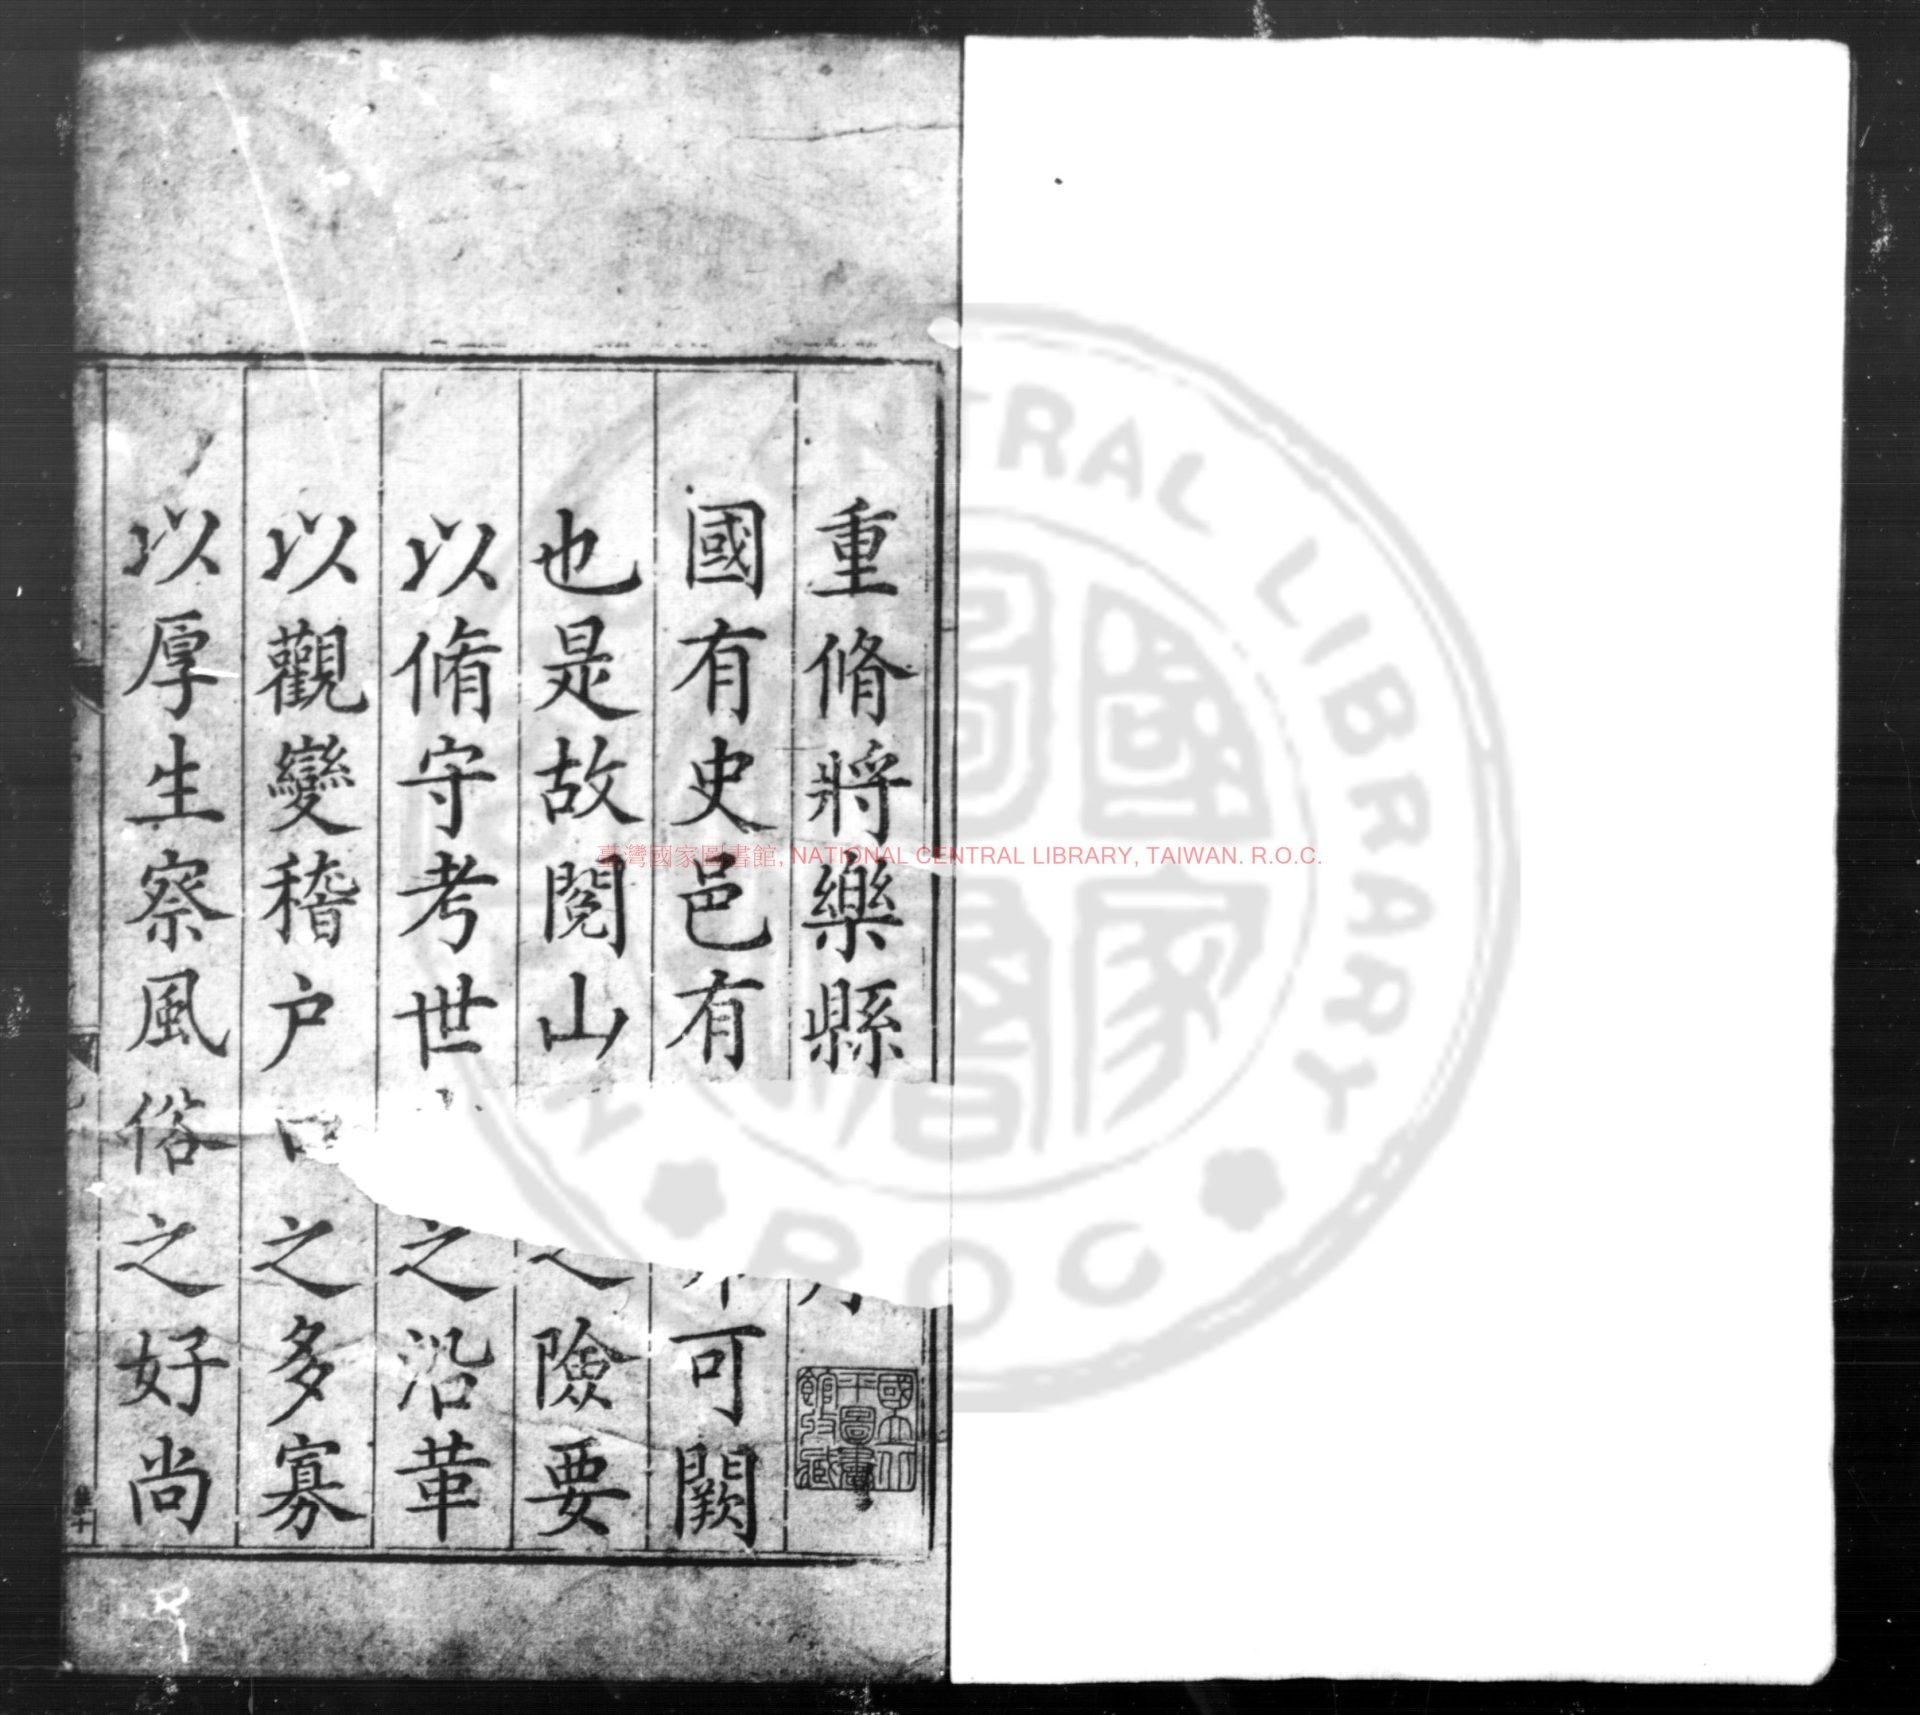 重脩將樂縣
國有史邑有可闕
也是故閱山之險要
以脩守考世之沿革
以觀變稽户口之多寡
以厚生察風俗之好尚
國立北
平圖書
館收藏
臺灣國家圖書館, NATIONAL CENTRAL LIBRARY, TAIWAN. R.O.C.
CENTRAL LIBRARY
ROC
國家圖書